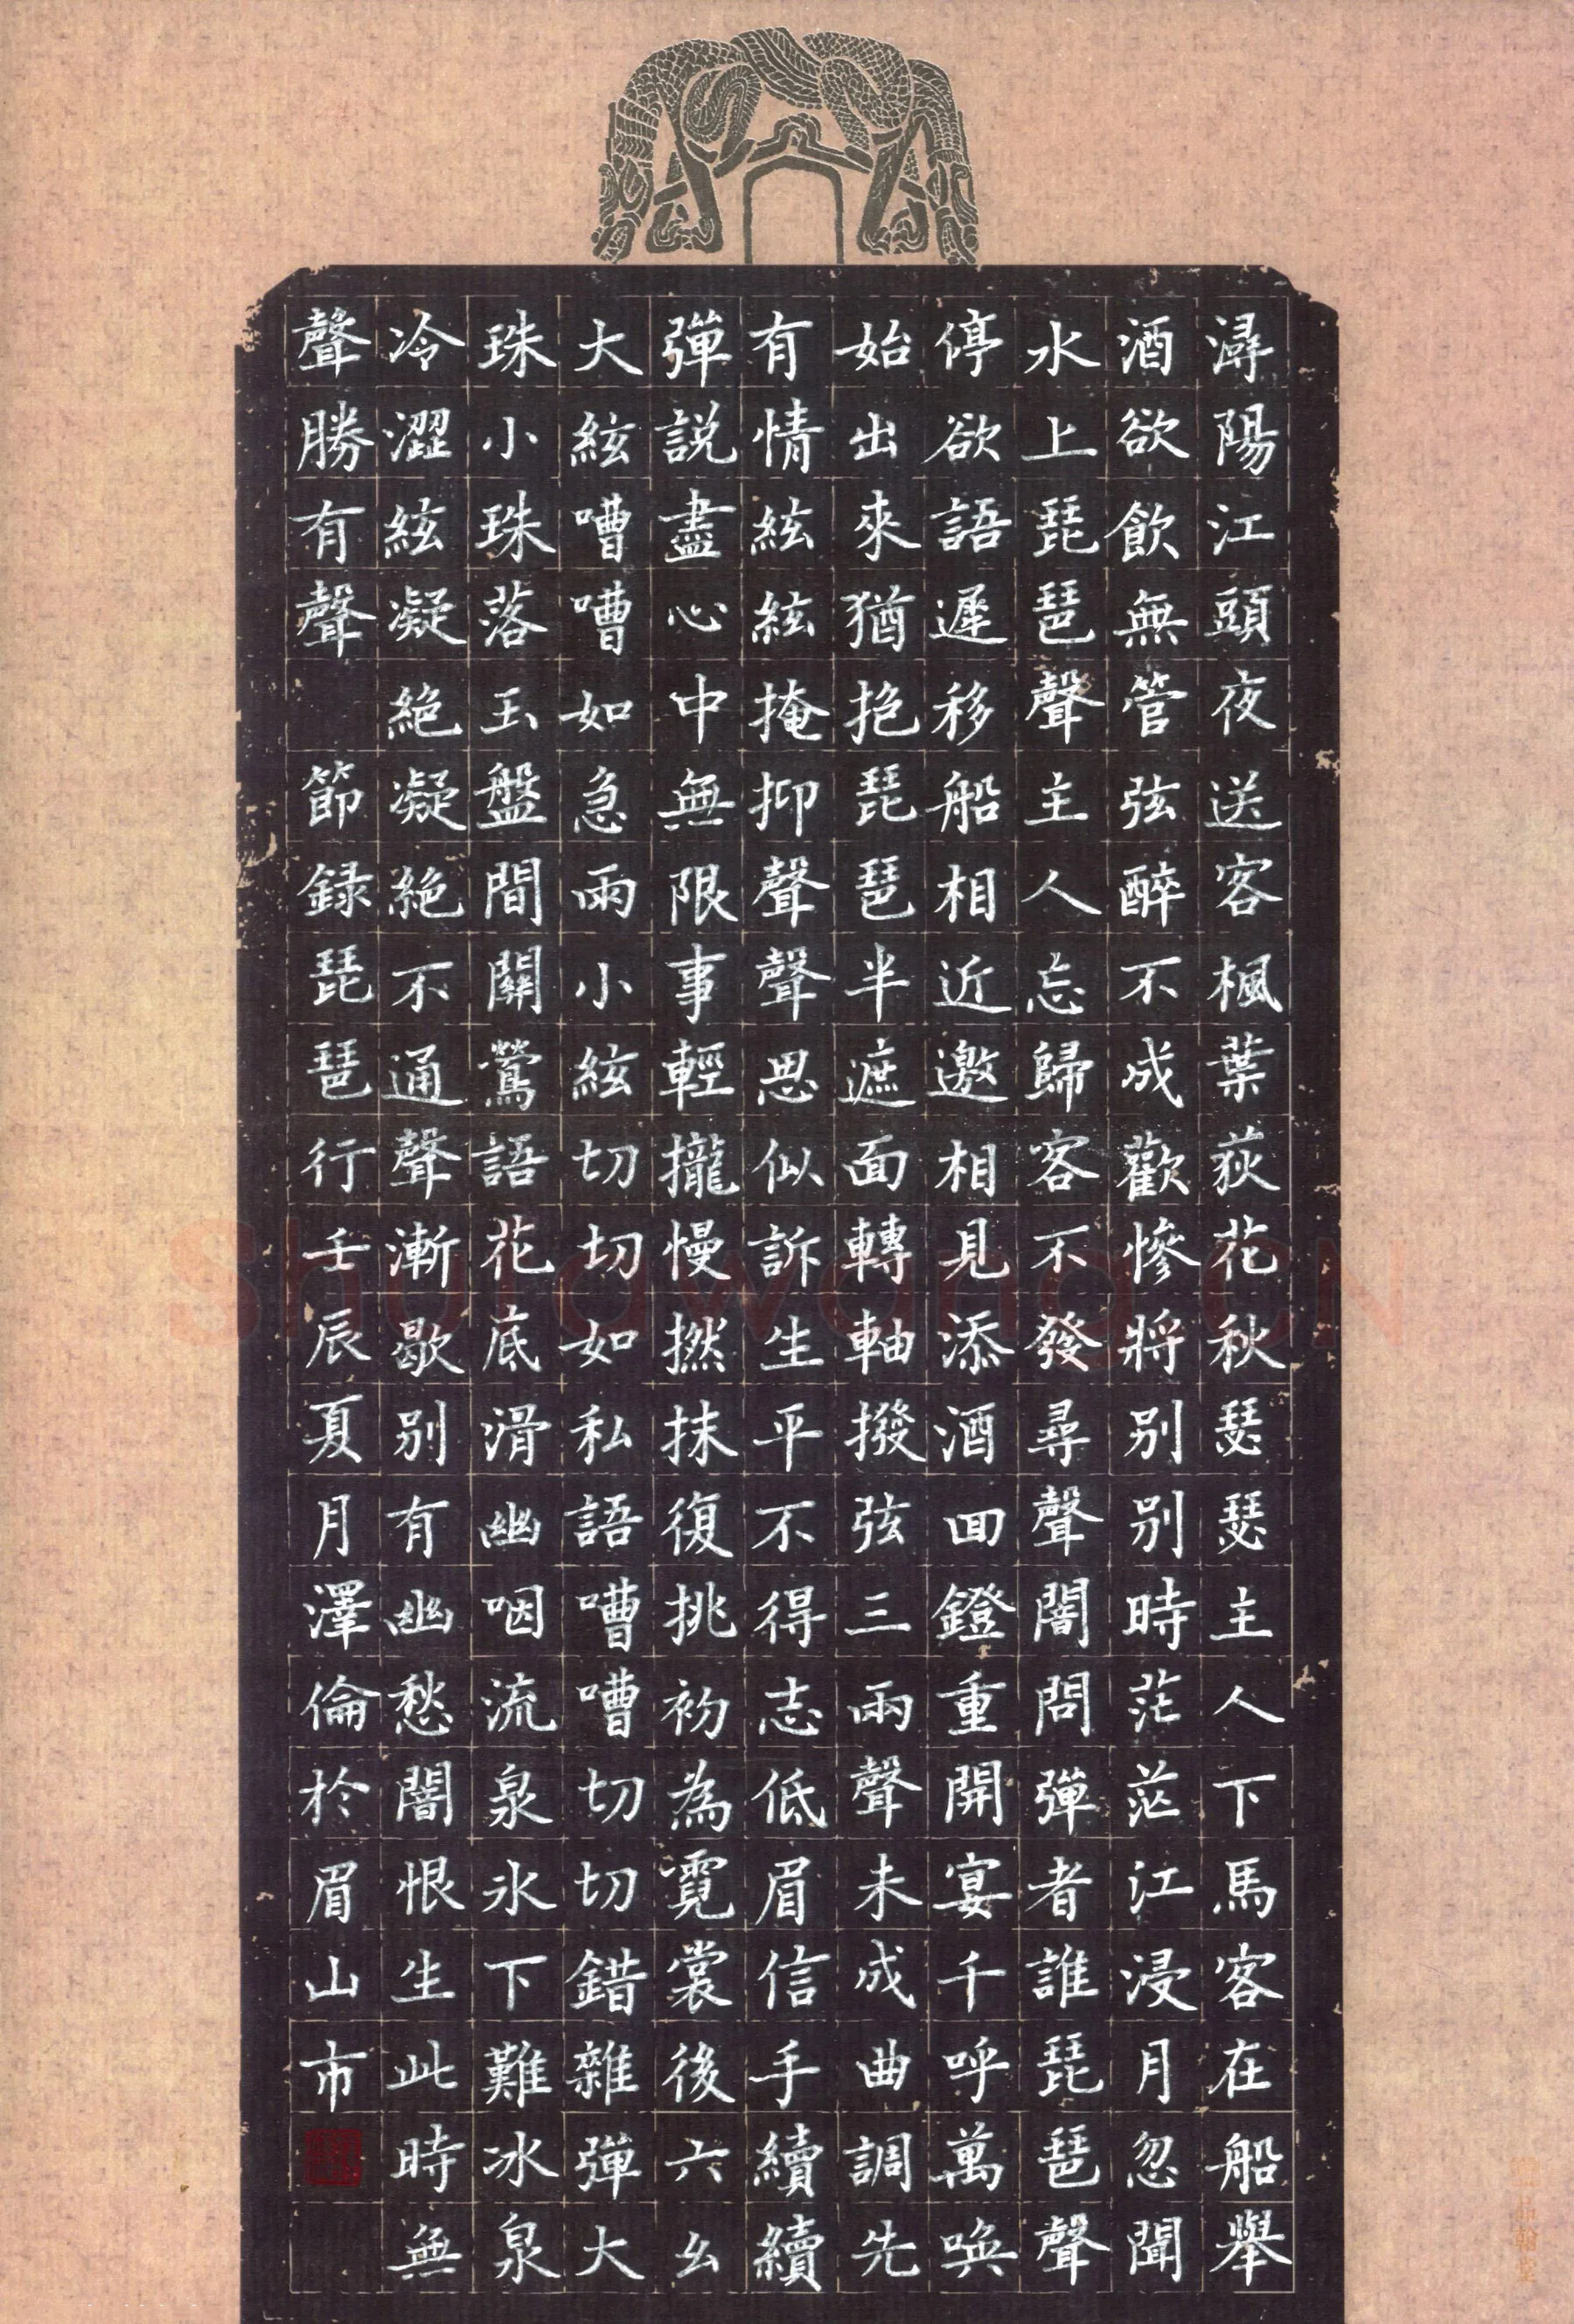 潯陽江頭夜送客楓葉荻花秋瑟瑟主人下馬客在船舉
酒欲飲無管弦醉不成歡慘將别别時茫茫江浸月忽聞
水上琵琶聲主人忘歸客不發尋聲闇問彈者誰琵琶聲
停欲語遲移船相近邀相見添酒回鐙重開宴千呼萬喚
始出來猶抱琵琶半遮面轉軸撥弦三兩聲未成曲調先
有情絃絃掩抑聲聲思似訴生平不得志低眉信手續續
彈説盡心中無限事輕攏慢撚抹復挑初為霓裳後六幺
大絃嘈嘈如急雨小絃切切如私語嘈嘈切切錯雜彈大
珠小珠落玉盤間關鶯語花底滑幽咽流泉氷下難冰泉
冷澀絃凝絶凝絶不通聲漸歇别有幽愁闇恨生此時無
聲勝有聲 節録琵琶行壬辰夏月澤倫於眉山市
Shufawang.CN